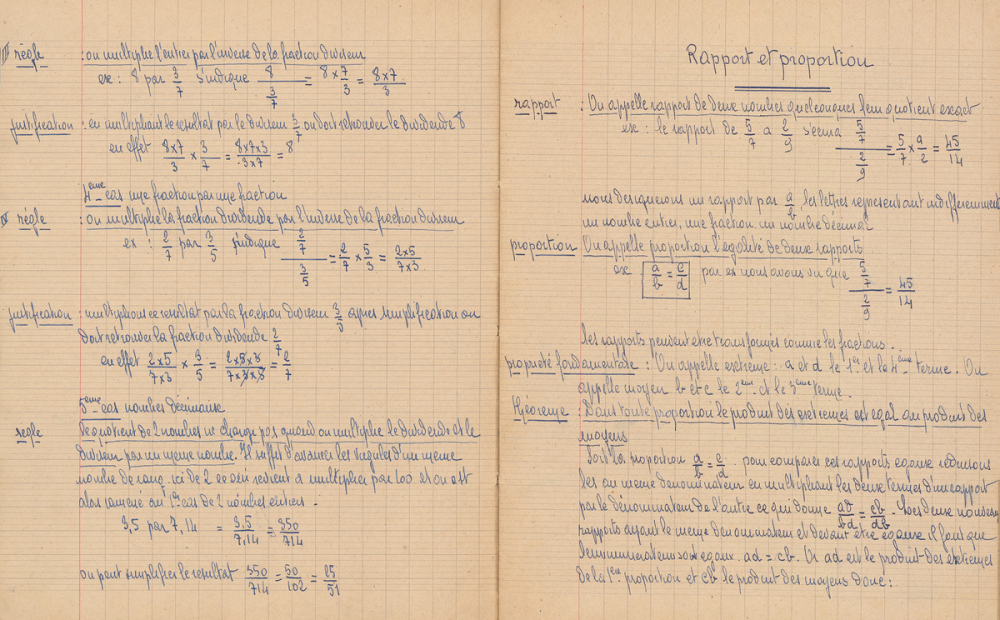 III règle : on multiplie l'entier par l'inverse de la fraction diviseur
ex : 8 par 3/7 s'indique 8/(3/7) = 8×7/3 = 8×7/3
justification : en multipliant le resultat par le diviseur 3/7 on doit retrouver le dividende 8
en effet 8×7/3 × 3/7 = 8×7×3/3×7 = 8
4eme cas une fraction par une fraction
IV règle : on multiplie la fraction dividende par l'inverse de la fraction diviseur
ex : 2/7 par 3/5 s'indique (2/7)/(3/5) = 2/7 × 5/3 = 2×5/7×3
justification : multiplions ce resultat par la fraction diviseur 3/5 apres simplification on
doit retrouver la fraction dividende 2/7
en effet 2×5/7×3 × 3/5 = 2×5×3/7×3×5 = 2/7
5eme cas nombres décimaux
regle le quotient de 2 nombres ne change pas quand on multiplie le dividende et le
diviseur par un meme nombre. Il suffit d'avancer les virgules d'un meme
nombre de rang ici de 2 ce qui revient a multiplier par 100 et on est
alors ramené au 1er cas de 2 nombres entiers.
3,5 par 7,14 = 3,5/7,14 = 350/714
on peut simplifier le resultat 350/714 = 50/102 = 25/51
Rapport et proportion
rapport : On appelle rapport de deux nombres quelconques leur quotient exact
ex : le rapport de 5/7 a 2/9 sera (5/7)/(2/9) = 5/7 × 9/2 = 45/14
nous designerons un rapport par a/b les lettres representant indifferemment
un nombre entier, une fraction, un nombre décimal
proportion On appelle proportion l'égalité de deux rapports
ex a/b = c/d par ex nous avons vu que (5/7)/(2/9) = 45/14
les rapports peuvent etre transformés comme les fractions.
propriété fondamentale : On appelle extreme : a et d le 1er et le 4eme terme. On
appelle moyen b et c le 2eme et le 3eme terme.
théoreme : Dans toute proportion le produit des extremes est egal au produit des
moyens
Soit la proportion a/b = c/d pour comparer ces rapports egaux reduisons
les au meme denominateur en multipliant les deux termes d'un rapport
par le dénominateur de l'autre ce qui donne ad/bd = cb/db. Ces deux nouveaux
rapports ayant le meme denominateur et devant etre égaux il faut que
leurs numerateurs soit egaux. ad = cb. Or ad est le produit des extremes
de la 1ere proportion et cb le produit des moyens donc :